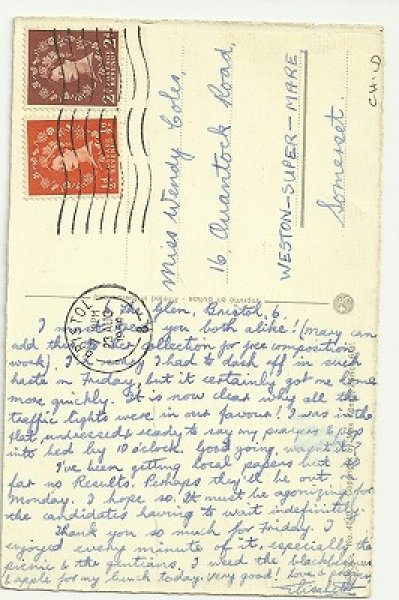 Miss Wendy Coles,
16, Quantock Road,
WESTON-SUPER-MARE
Somerset.
CH-W
BRISTOL
AUG
The Glen, Bristol, 6.
I must treat you both alike! (Mary can
add this to her collection for pre composition
work). I'm sorry I had to dash off in such
haste on Friday, but it certainly got me home
more quickly. It is now clear why all the
traffic lights were in our favour! I was in the
flat undressed & ready to say my prayers & pop
into bed by 10 o'clock. Good going, wasn't it.
I've been getting local papers but so
far no Results. Perhaps they'll be out
Monday. I hope so. It must be agonizing for
the candidates having to wait indefinitely.
Thank you so much for Friday. I
enjoyed every minute of it, especially the
picnic & the gentians. I used the blackberries
& apple for my lunch today. Very good! Love & prayers,
Elisabeth
Imprimé en Suisse